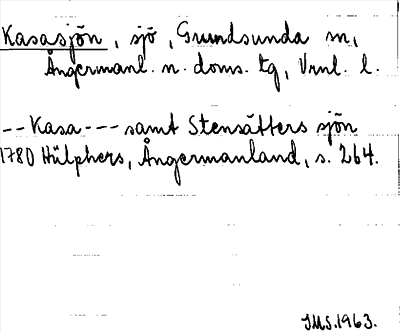 Kasasjön, sjö, Grundsunda sn,
Ångermanl. n. doms. tg, Vrnl. l.
-- Kasa --- samt Stensätters sjön
1780 Hülphers, Ångermanland, s. 264.
IMS. 1963.